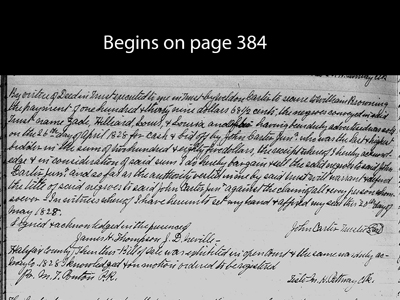 Begins on page 384
By virtue of Deed in Trust executed to me in Trust by Weldon Carter to secure to William Browning
the payment of one hundred & thirty nine dollars 39 1/2 cents, the negroes conveyed in said
Trust name Jade, Hilliard, & Louisa and having been duly advertised & sold
on the 26th day of April 1828 for cash & bid off by John Carter Junr. who was the last & highest
bidder in the sum of two hundred & eighty five dollars, the receipt whereof I hereby acknowl
edge & in consideration of said sum I do hereby bargain & sell the said negroes to said John
Carter Junr. and so far as the authority vested in me by said trust will warrant & defend
the title of said negroes to said John Carter Junr. against the claims of all & every person whom
soever. In witness whereof I have hereunto set my hand & affixed my seal this 23d day of
May 1828.
John Carter Trustee Seal
Signed and acknowledged in the presence of
James H. Thompson, J. D. Neville
Halifax County, Then this Bill of Sale was exhibited in open Court & the same was duly ac
1828 acknowledged & on motion ordered to be registered
Pr. M. T. Ponton R.
Teste. H. Pittman Clk.